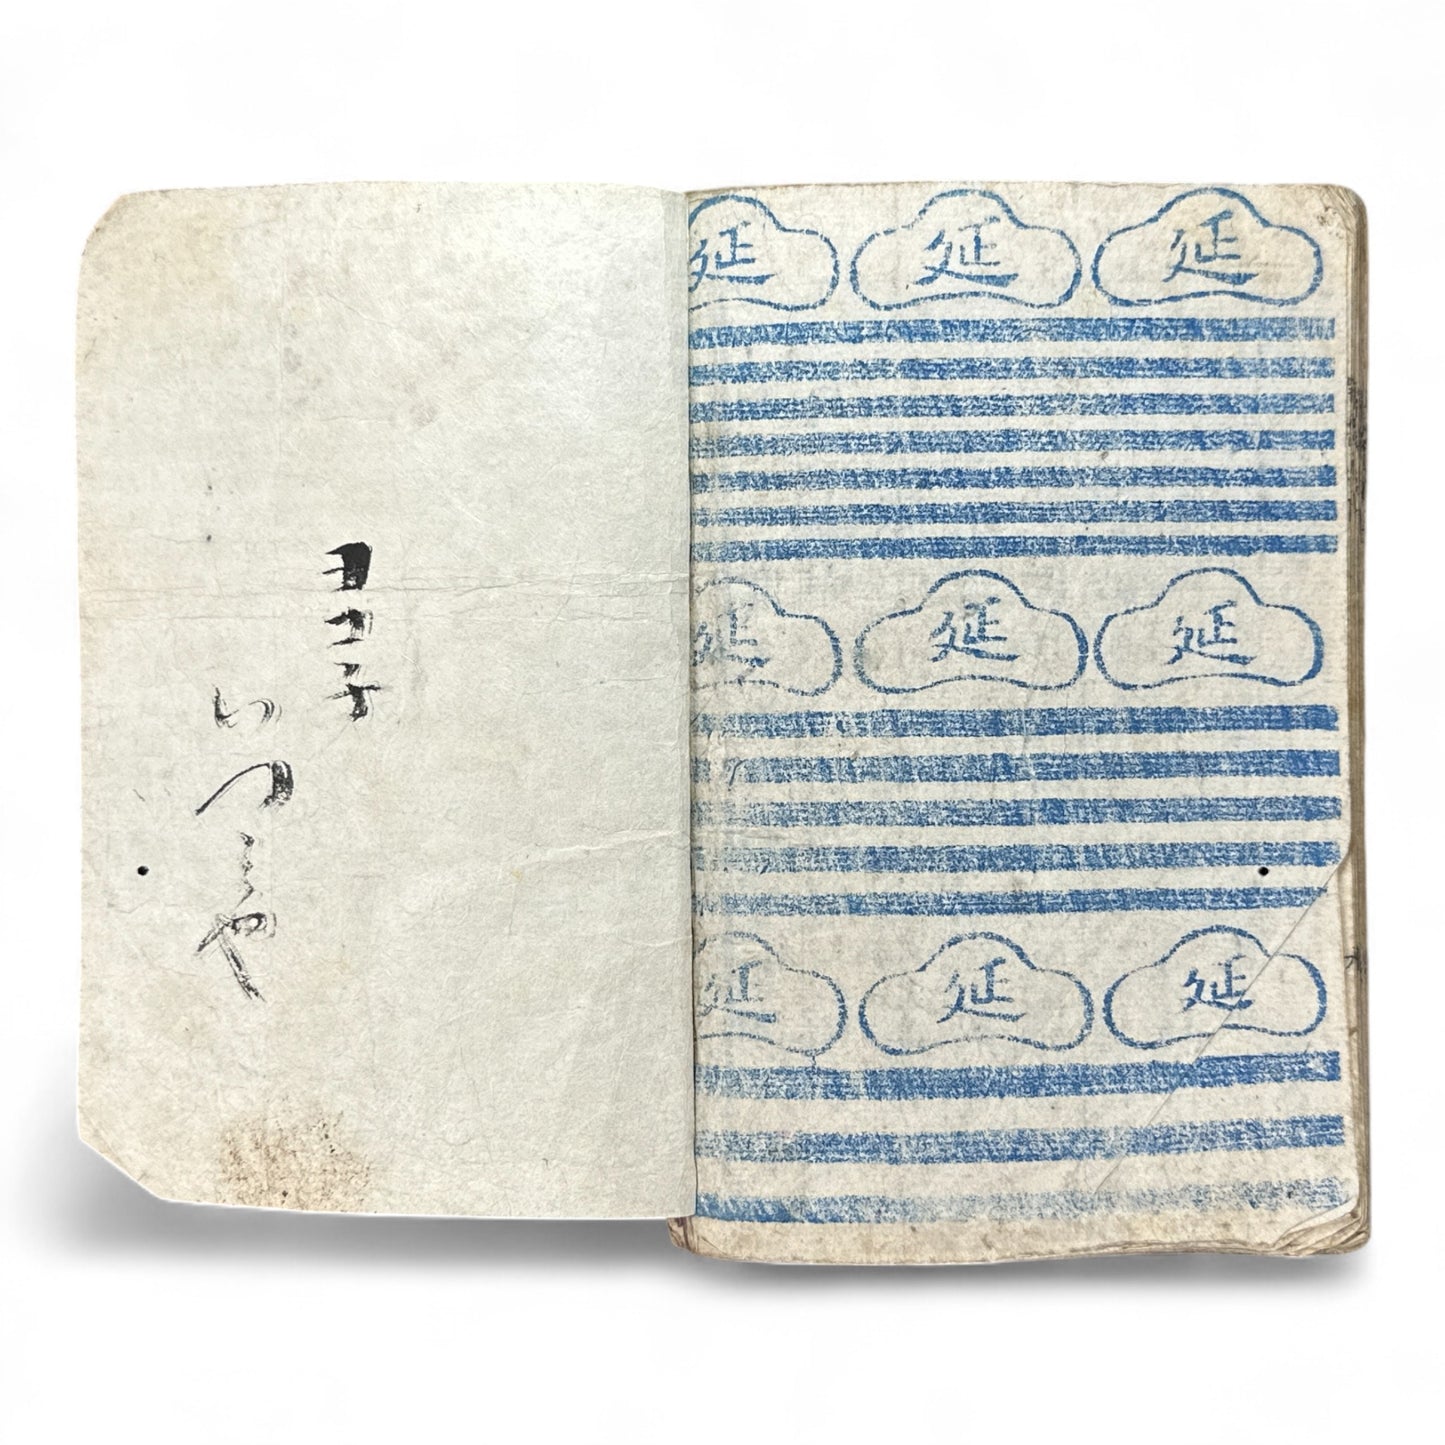 延 延 延
延 延 延
延 延 延
ヨコテ
いつミや